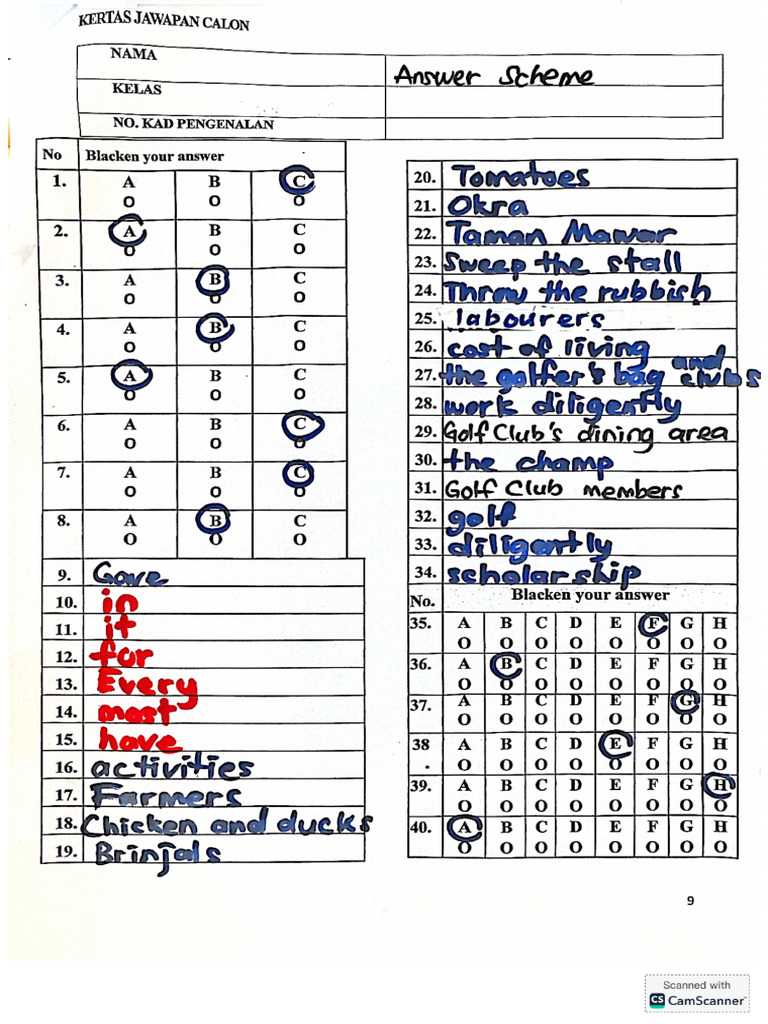 KERTAS JAWAPAN CALON
NAMA
Answer Scheme
KELAS
NO. KAD PENGENALAN
No Blacken your answer
1. A B C
O O O
2. A B C
O O O
3. A B C
O O O
4. A B C
O O O
5. A B C
O O O
6. A B C
O O O
7. A B C
O O O
8. A B C
O O O
9. Gave
10. in
11. it
12. for
13. Every
14. most
15. have
16. activities
17. Farmers
18. Chicken and ducks
19. Brinjals
20. Tomatoes
21. Okra
22. Taman Mawar
23. Sweep the stall
24. Throw the rubbish
25. labourers
26. cost of living
27. the golfer's bag and clubs
28. work diligently
29. Golf Club's dining area
30. the champ
31. Golf Club members
32. golf
33. diligently
34. scholarship
No. Blacken your answer
35. A B C D E F G H
O O O O O O O O
36. A B C D E F G H
O O O O O O O O
37. A B C D E F G H
O O O O O O O O
38 A B C D E F G H
. O O O O O O O O
39. A B C D E F G H
O O O O O O O O
40. A B C D E F G H
O O O O O O O O
9
Scanned with
CS CamScanner